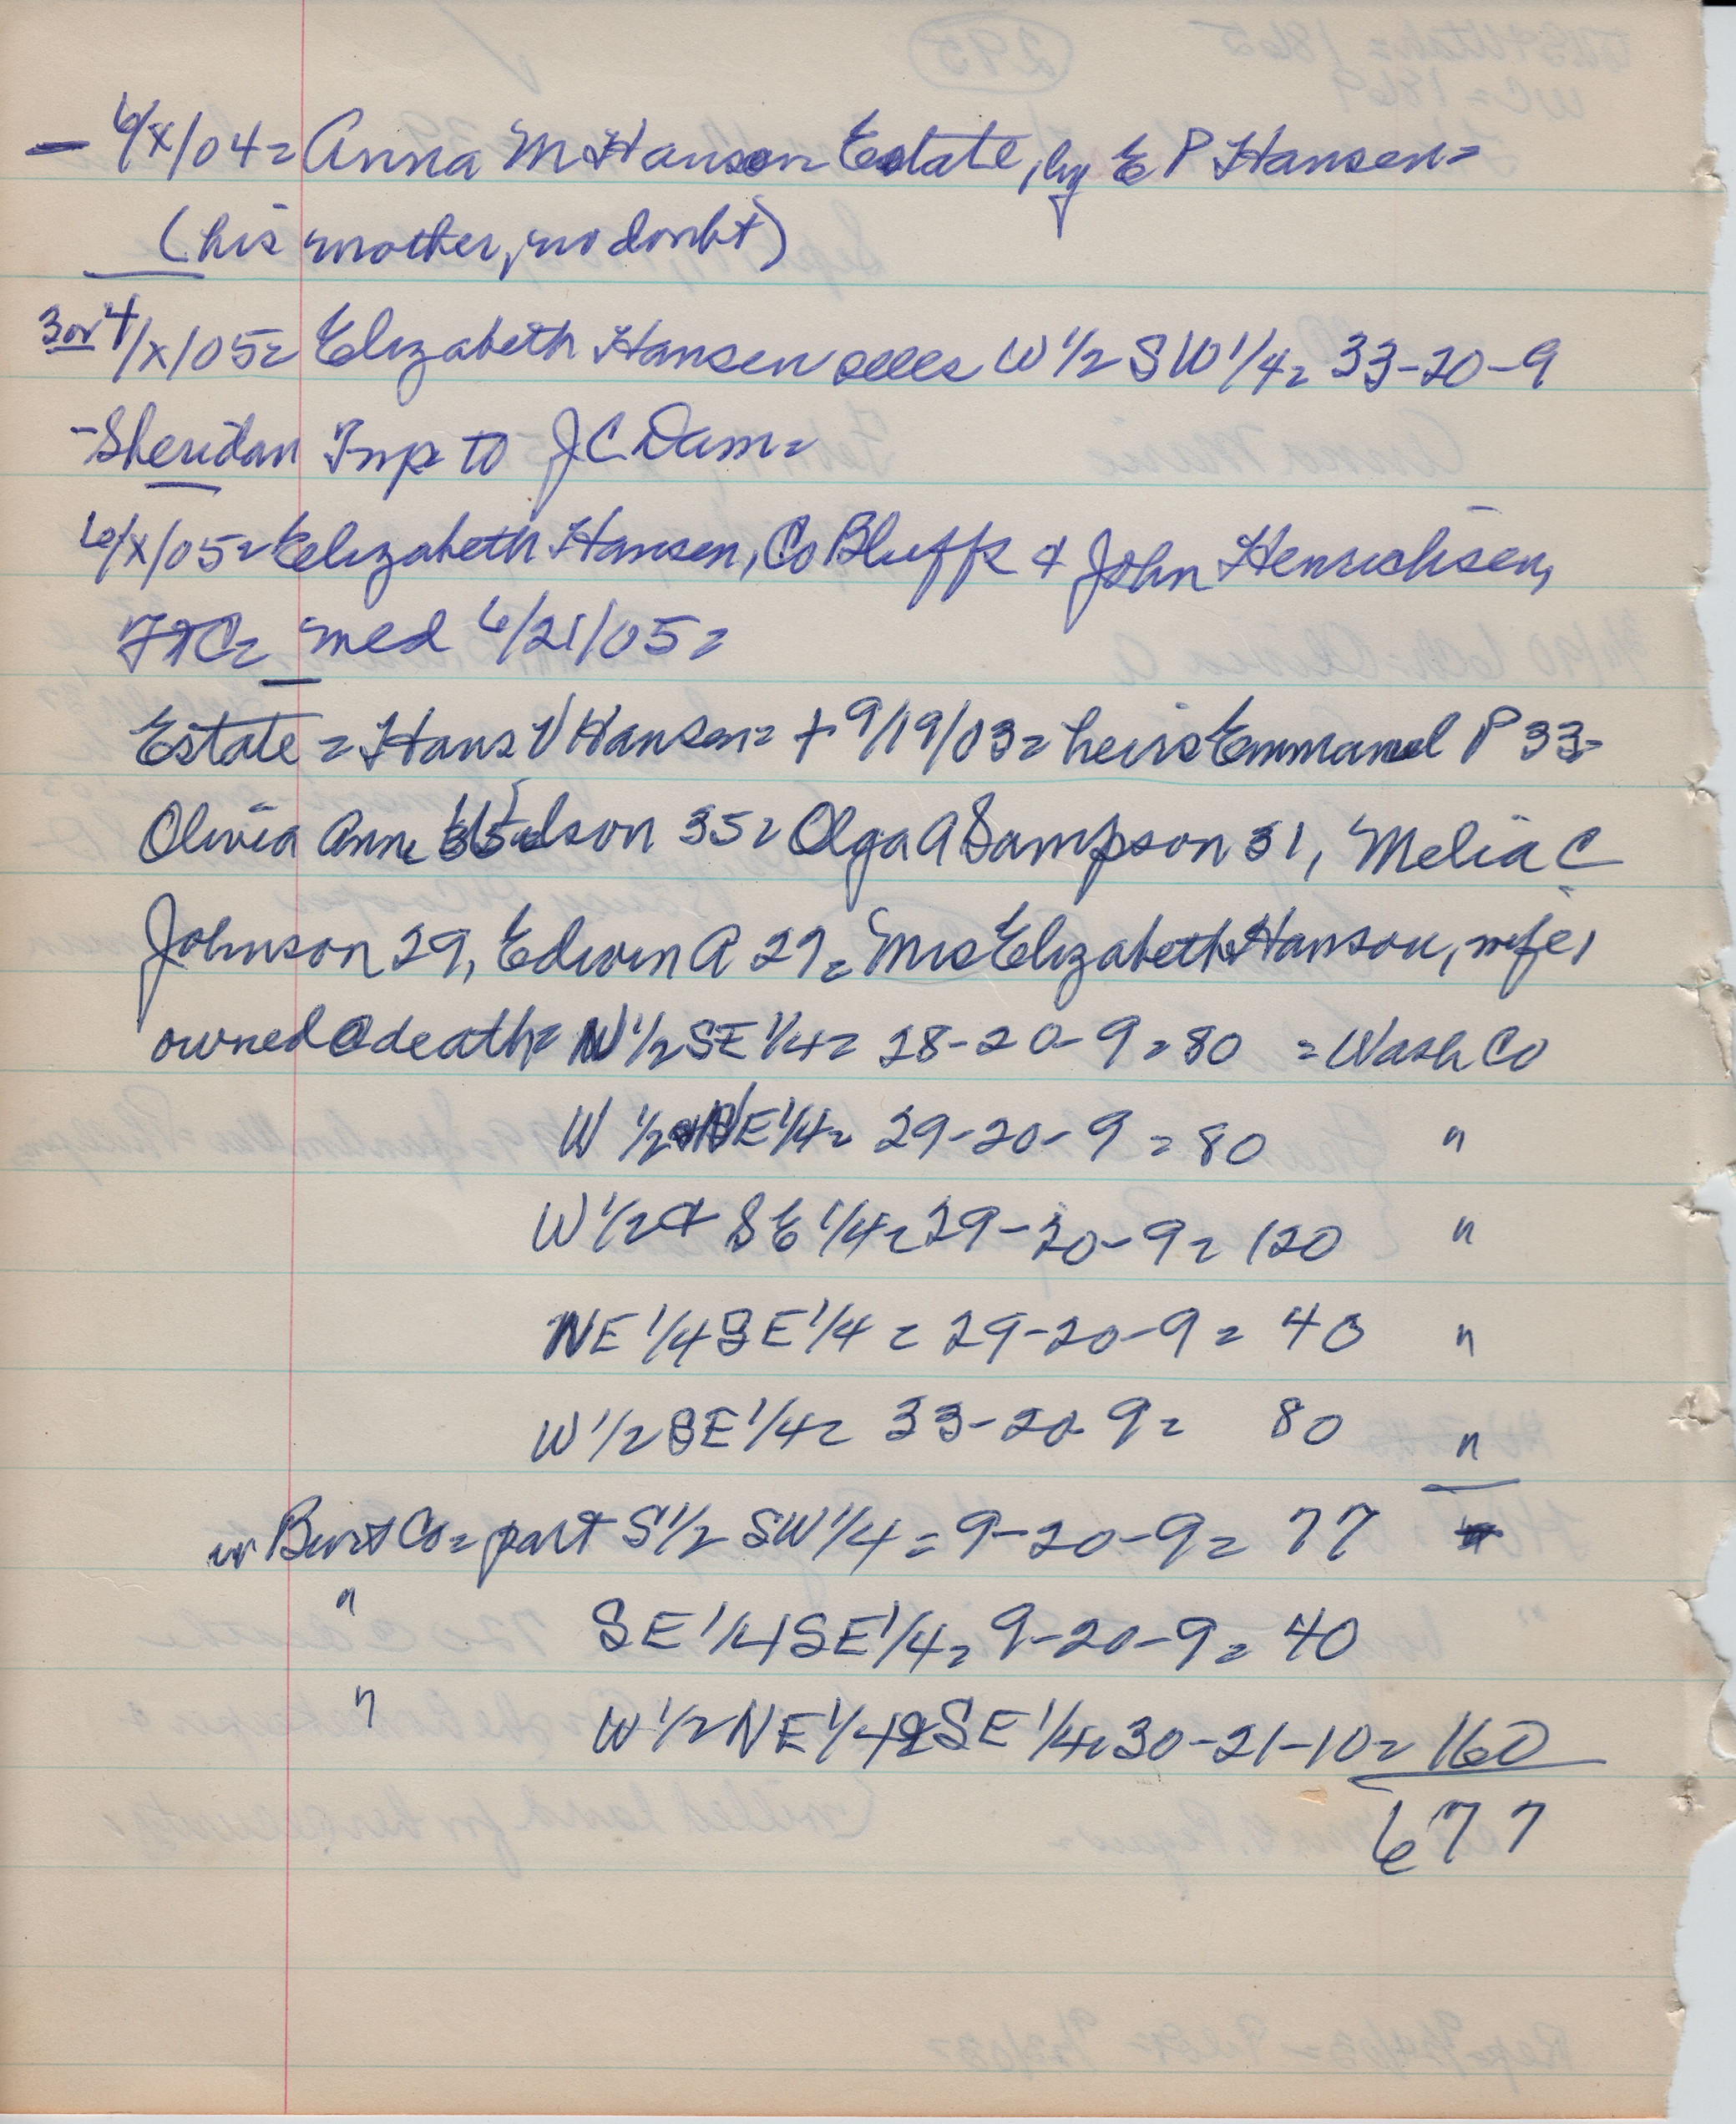 — 6/X/04= Anna M Hanson Estate, by E P Hansen=
(his mother, no doubt)
3 or 4/X/05= Elizabeth Hansen sells W 1/2 SW 1/4= 33-20-9
-Sheridan Twp to J C Dam=
6/X/05= Elizabeth Hansen, Co Bluffs & John Henrichsen,
FTC= med 6/21/05=
Estate = Hans V Hansen= + 9/19/03= heirs Emmanuel P 33=
Olivia Ann 35= Olga A Sampson 31, Melia C
Johnson 29, Edwin A 27= Mrs Elizabeth Hanson, wife,
owned @ death= N 1/2 SE 1/4= 28-20-9=80 = Wash Co
W 1/2 NE 1/4= 29-20-9=80 "
W 1/2 & SE 1/4= 29-20-9= 120 "
NE 1/4 SE 1/4 = 29-20-9= 40 "
W 1/2 SE 1/4= 33-20-9= 80 "
in Burt Co= part S 1/2 SW 1/4 = 9-20-9= 77
" SE 1/4 SE 1/4= 9-20-9= 40
" W 1/2 NE 1/4 & SE 1/4= 30-21-10= 160
677